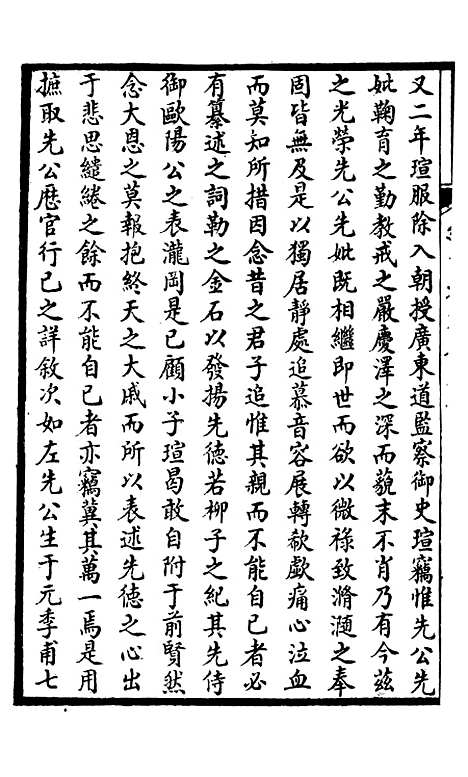 又二年瑄服除入朝授廣東道監察御史瑄竊惟先公先
妣鞠育之勤教戒之嚴慶澤之深而藐末不肖乃有今茲
之光榮先公先妣既相繼即世而欲以微祿致滫瀡之奉
固皆無及是以獨居靜處追慕音容展轉欷歔痛心泣血
而莫知所措因念昔之君子追惟其親而不能自已者必
有纂述之詞勒之金石以發揚先德若柳子之紀其先侍
御歐陽公之表瀧岡是已顧小子瑄曷敢自附于前賢然
念大恩之莫報抱終天之大戚而所以表述先德之心出
于悲思繾綣之餘而不能自已者亦竊冀其萬一焉是用
摭取先公歷官行已之詳敘次如左先公生于元季甫七